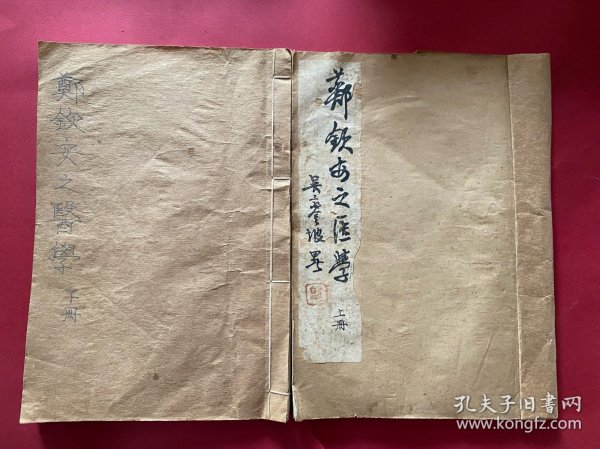 鄭欽安之醫學
下册
鄭欽安之医學
上冊
孔夫子旧书网
www.kongfz.com